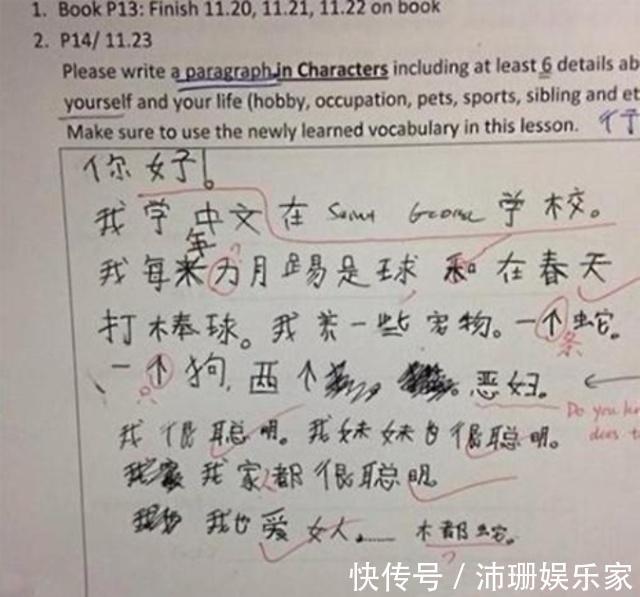 1. Book P13: Finish 11.20, 11.21, 11.22 on book
2. P14/ 11.23
Please write a paragraph in Characters including at least 6 details ab
yourself and your life (hobby, occupation, pets, sports, sibling and et
Make sure to use the newly learned vocabulary in this lesson.
你好!。
我学中文在 Saint George 学校。
年
我每来为月踢是球 和在春天
打棒球。我养一些宠物。一个蛇。
条
一个狗, 两个 恶妇。
Do you kn
does t
我很聪明。我妹妹也很聪明。
我家都很聪明。
我也爱女人…… 木都蛇。
快传号 / 沛珊娱乐家